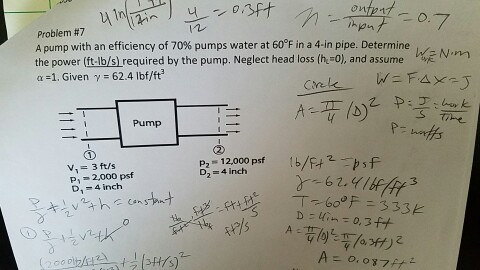 4/12 = 0.3ft
η = output/input = 0.7
Problem #7
A pump with an efficiency of 70% pumps water at 60°F in a 4-in pipe. Determine
the power (ft-lb/s) required by the pump. Neglect head loss (hL=0), and assume
α=1. Given γ = 62.4 lbf/ft³
W = N·m
W = FΔx = J
circle
A = π/4 (D)²
P = J/s = work/time
P = watts
Pump
①
②
V₁ = 3 ft/s
P₁ = 2,000 psf
D₁ = 4 inch
P₂ = 12,000 psf
D₂ = 4 inch
lb/ft² = psf
γ = 62.4 lbf/ft³
T = 60°F = 333K
D = 4in = 0.3ft
A = π/4 (D)² = π/4 (0.3ft)²
A = 0.087ft²
P/γ + 1/2 v² + h = constant
① P/γ + 1/2 v² + h 0
ft²/s
(2000 lb/ft²) + 1/2 (3ft/s)²